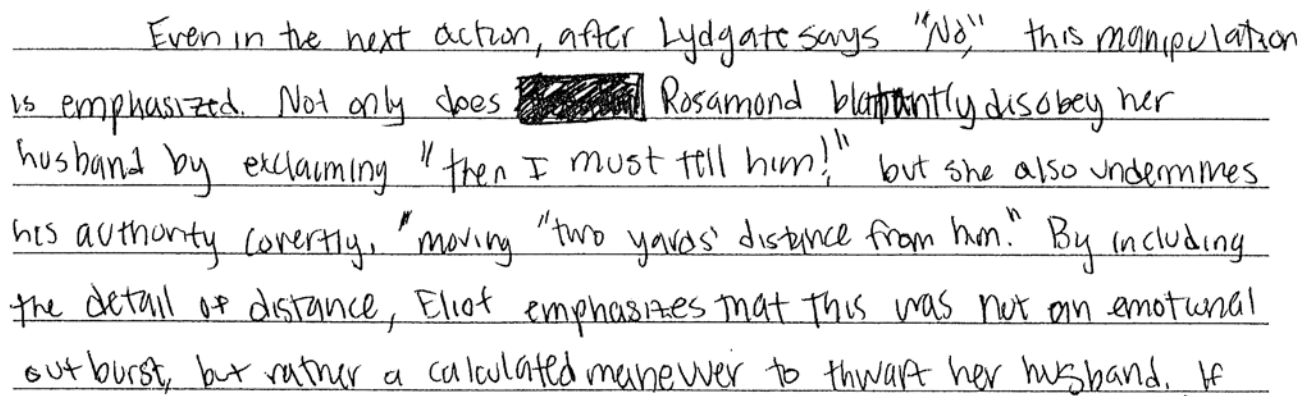 Even in the next action, after Lydgate says "No," this manipulation
is emphasized. Not only does Rosamond blatantly disobey her
husband by exclaiming "then I must tell him!" but she also undermines
his authority covertly, "moving "two yards' distance from him." By including
the detail of distance, Eliot emphasizes that this was not an emotional
outburst, but rather a calculated maneuver to thwart her husband. If